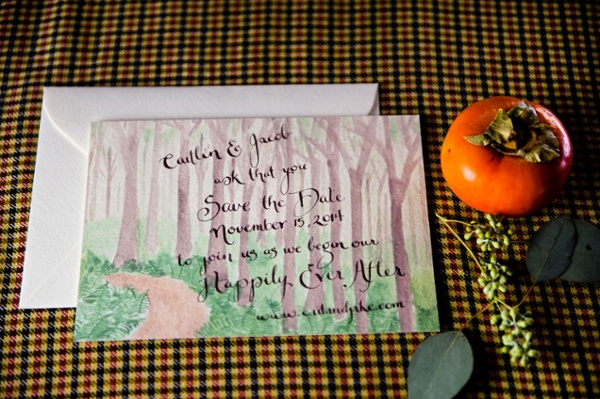 Caitlin & Jacob
ask that you
Save the Date
November 15, 2014
to join us as we begin our
Happily Ever After
www.caitandjake.com